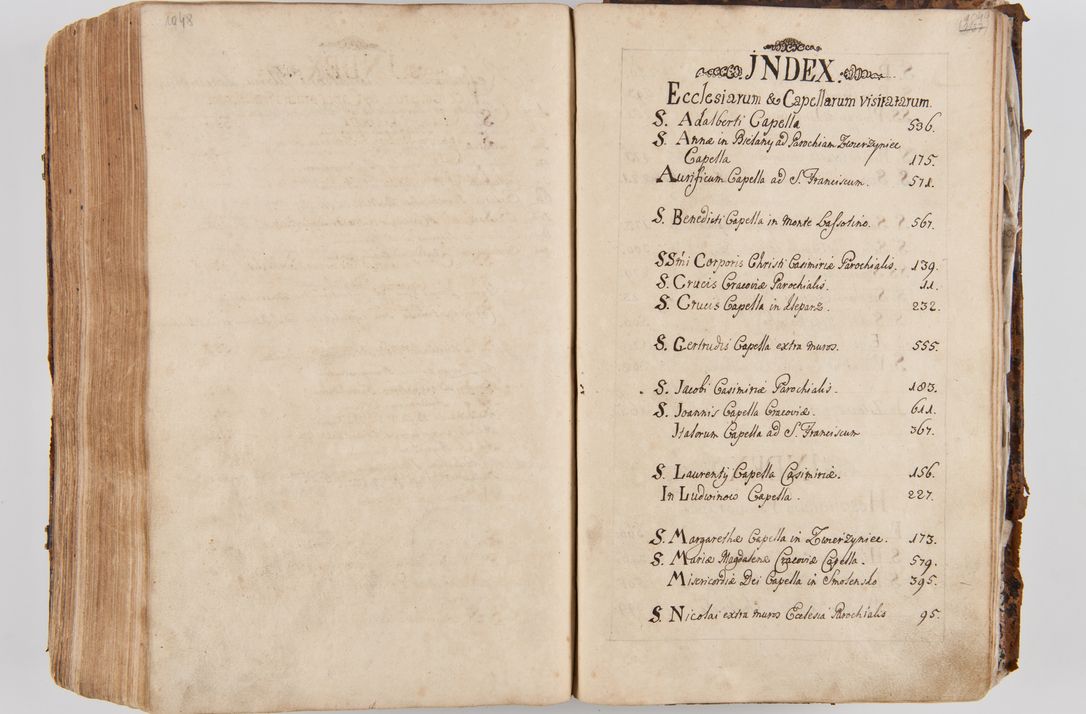 1048
JNDEX
Ecclesiarum & Capellarum visitatarum.
S. Adalberti Capella 536.
S. Annæ in Bielany ad Parochiam Zwierzyniec
Capella 175.
Aurificum Capella ad S. Franciscum. 571.
S. Benedicti Capella in monte Lassotino. 567.
SSmi Corporis Christi Casimiriæ Parochialis. 139.
S. Crucis Cracoviæ Parochialis. 11.
S. Crucis Capella in Kleparz. 232.
S. Gertrudis Capella extra muros. 555.
S. Jacobi Casimiriæ Parochialis. 183.
S. Joannis Capella Cracoviæ. 611.
Italorum Capella ad S. Franciscum 367.
S. Laurentij Capella Casimiriæ. 156.
In Ludwinow Capella. 227.
S. Margarethæ Capella in Zwierzyniec. 173.
S. Mariæ Magdalenæ Cracoviæ Capella. 579.
Misericordiæ Dei Capella in Smolensko 395.
S. Nicolai extra muros Ecclesia Parochialis 95.